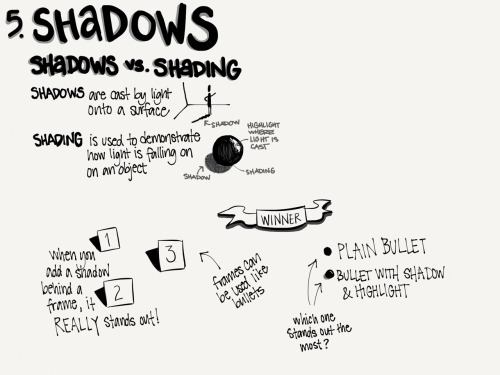 5. SHADOWS
SHADOWS vs. SHADING
SHADOWS are cast by light
onto a surface
SHADOW
SHADING is used to demonstrate
how light is falling on
on an object
HIGHLIGHT
WHERE
LIGHT IS
CAST
SHADING
SHADOW
WINNER
when you
add a shadow
behind a
frame, it
REALLY stands out!
1
2
3
frames can
be used like
bullets
PLAIN BULLET
BULLET WITH SHADOW
& HIGHLIGHT
which one
stands out the
most?